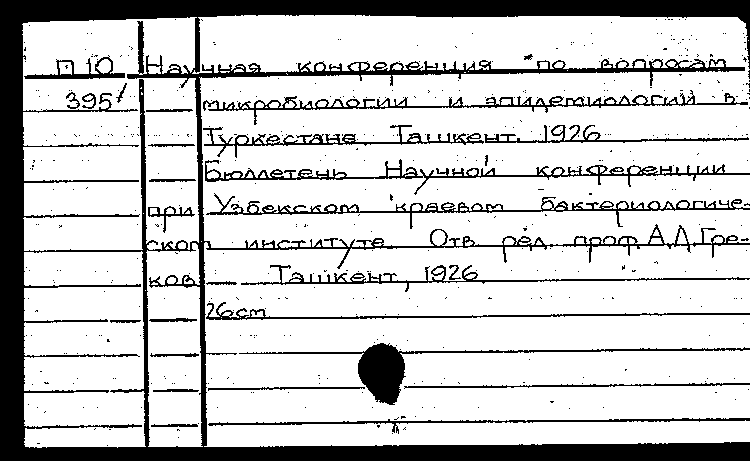 П 10 Научная конференция по вопросам
395 микробиологии и эпидемиологии в
Туркестане. Ташкент. 1926
Бюллетень Научной конференции
при Узбекском краевом бактериологиче-
ском институте. Отв. ред. проф. А.Д.Гре-
ков. Ташкент, 1926.
26см